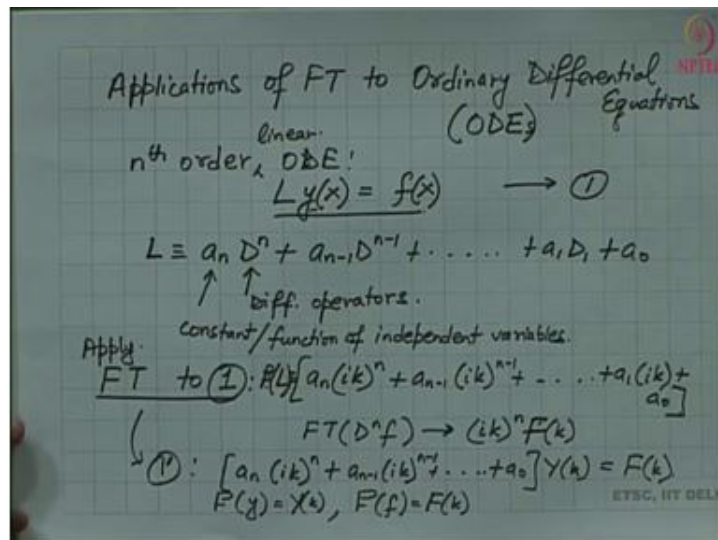 Applications of FT to Ordinary Differential Equations
(ODEs)
nth order, linear ODE:
L y(x) = f(x) → ①
L ≡ aₙ Dⁿ + aₙ₋₁ Dⁿ⁻¹ + ..... + a₁ D₁ + a₀
Diff. operators.
Constant/function of independent variables.
Apply
FT to ①: [aₙ(ik)ⁿ + aₙ₋₁(ik)ⁿ⁻¹ + ..... + a₁(ik) + a₀]
FT(Dⁿf) → (ik)ⁿ F(k)
①': [aₙ(ik)ⁿ + aₙ₋₁(ik)ⁿ⁻¹ + .... + a₀] Y(k) = F(k)
F(y) = Y(k), F(f) = F(k)
NPTEL
ETSC, IIT DEL